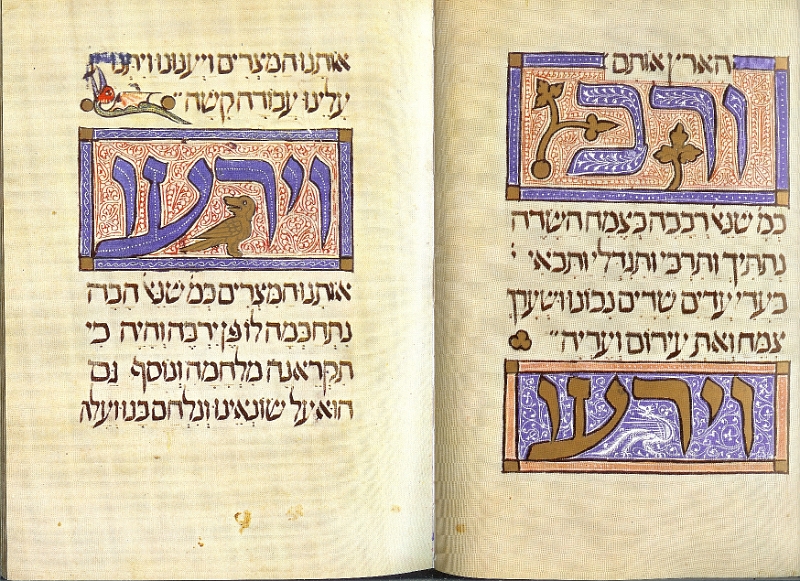 הארץ אותם
ורב
כמ׳ שנא׳ רבבה כצמח השדה
נתתיך ותרבי ותגדלי ותבאי
בעדי עדים שדים נכונו ושערך
צמח ואת עירום ועריה
וירעו
אותנו המצרים ויענונו ויתנו
עלינו עבודה קשה
וירעו
אותנו המצרים כמ׳ שנא׳ הבה
נתחכמה לו פן ירבה והיה כי
תקראנה מלחמה ונוסף גם
הוא על שונאינו ונלחם בנו ועלה